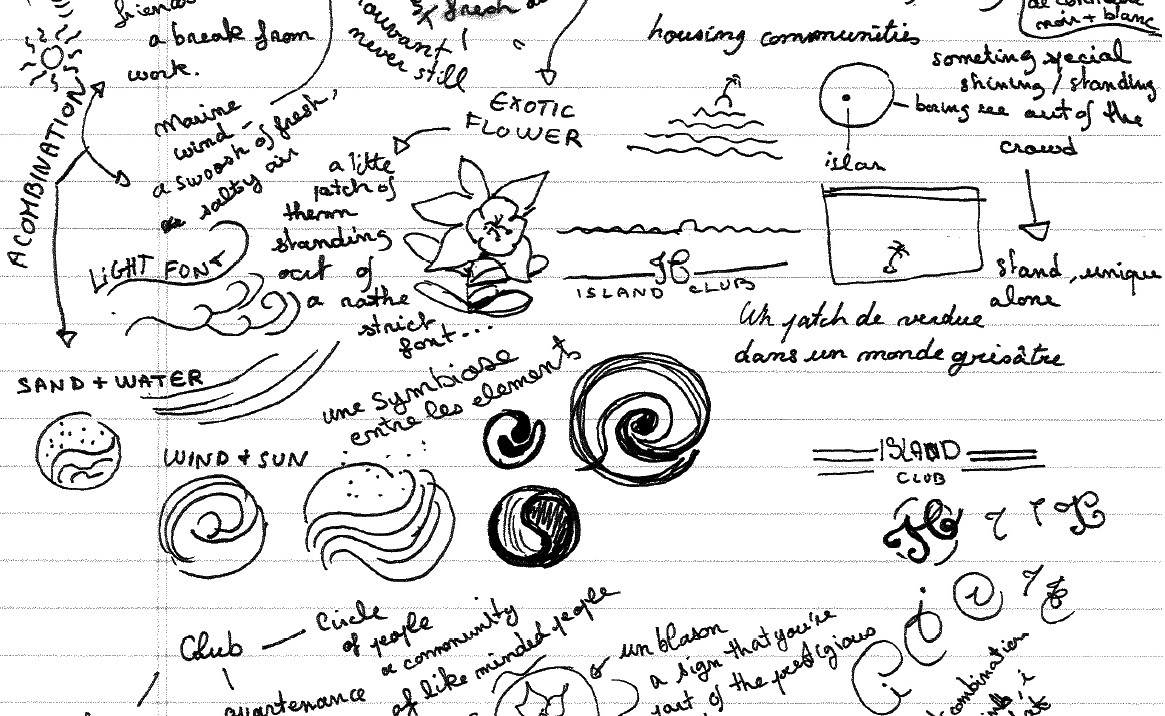 a break from
work.
fresh
mouvant !
never still
housing communities
noir + blanc
someting special
shining / standing
out of the
crowd
stand, unique
alone
EXOTIC
FLOWER
Marine
wind -
a swoosh of fresh,
salty air
a litte
patch of
standing
out of
a rathe
strict
font...
A COMBINATION
LIGHT FONT
islan
ISLAND CLUB
Un patch de verdue
dans un monde grisâtre
SAND + WATER
une symbiose
entre les elements
WIND + SUN
ISLAND
CLUB
Club
Circle
of people
a community
of like minded people
un blason
a sign that you're
part of the prestigious
combination
i
i
i